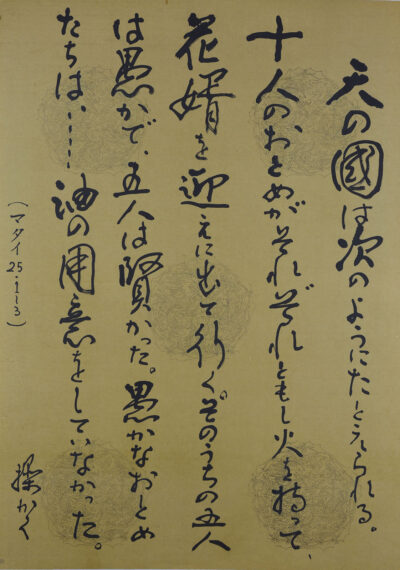 天の國は次のようにたとえられる。
十人のおとめがそれぞれともし火を持って、
花婿を迎えに出て行く。そのうちの五人
は愚かで、五人は賢かった。愚かなおとめ
たちは、……油の用意をしていなかった。
(マタイ25・1–3)
かく